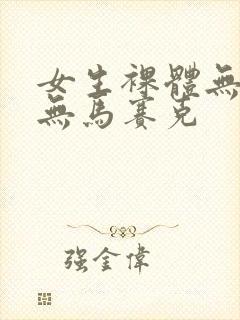 女生裸體無
無馬賽克
强金偉